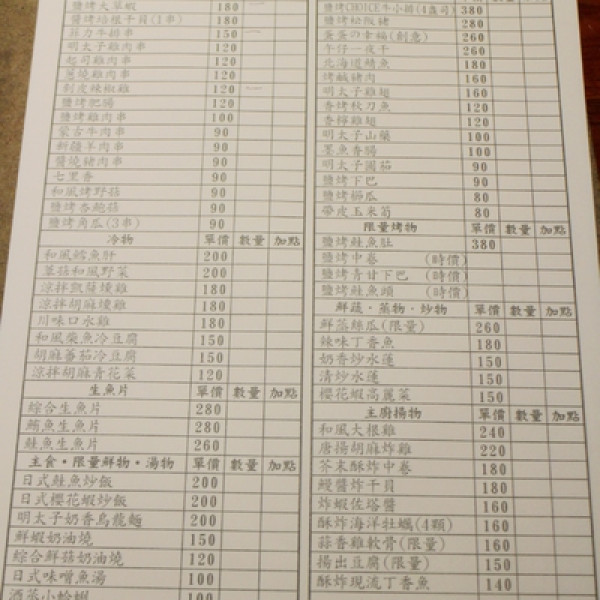 鹽烤大草蝦 180
醬烤培根干貝(1串) 180
菲力牛排串 150
明太子雞肉串 120
起司雞肉串 120
蔥燒雞肉串 120
剝皮辣椒雞 120
鹽烤肥腸 120
鹽烤雞肉串 100
蒙古牛肉串 90
新疆羊肉串 90
醬燒豬肉串 90
七里香 90
和風烤野菇 90
鹽烤杏鮑菇 90
鹽烤角瓜(3串) 90
冷物 單價 數量 加點
和風鱈魚肝 200
蕈菇和風野菜 200
涼拌凱薩燻雞 180
涼拌胡麻燻雞 180
川味口水雞 180
和風柴魚冷豆腐 150
胡麻蕃茄冷豆腐 150
涼拌胡麻青花菜 120
生魚片 單價 數量 加點
綜合生魚片 280
鮪魚生魚片 280
鮭魚生魚片 260
主食·限量鮮物·湯物 單價 數量 加點
日式鮭魚炒飯 200
日式櫻花蝦炒飯 200
明太子奶香烏龍麵 200
鮮蝦奶油燒 150
綜合鮮菇奶油燒 120
日式味噌魚湯 100
酒蒸小蛤蜊 100
鹽烤CHOICE牛小排(4盎司) 380
鹽烤松阪豬 280
蛋蛋の幸福(創意) 260
午仔一夜干 260
北海道鯖魚 180
烤鹹豬肉 160
明太子雞翅 160
香烤秋刀魚 120
香檸雞翅 120
明太子山藥 100
墨魚香腸 100
明太子圓茄 90
鹽烤下巴 90
鹽烤櫛瓜 80
帶皮玉米筍 80
限量烤物 單價 數量 加點
鹽烤鮭魚肚 380
鹽烤中卷 (時價)
鹽烤青甘下巴 (時價)
鹽烤鮭魚頭 (時價)
鮮蔬·蒸物·炒物 單價 數量 加點
鮮菇絲瓜(限量) 260
辣味丁香魚 180
奶香炒水蓮 150
清炒水蓮 150
櫻花蝦高麗菜 150
主廚揚物 單價 數量 加點
和風大根雞 240
唐揚胡麻炸雞 220
芥末酥炸中卷 180
鰻醬炸干貝 180
炸蝦佐塔醬 160
酥炸海洋牡蠣(4顆) 160
蒜香雞軟骨(限量) 160
揚出豆腐(限量) 150
酥炸現流丁香魚 140